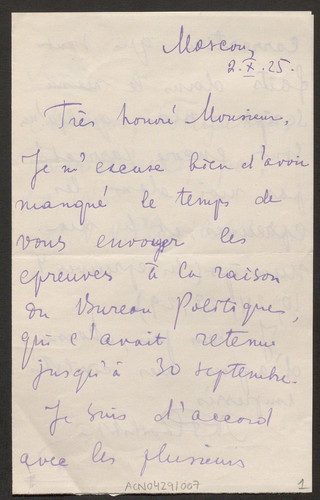 Moscou,
2.X.25.
Très honoré Monsieur,
Je m'excuse bien d'avoir
manqué le temps de
vous envoyer les
epreuves à la raison
du Bureau Politiques,
qui l'avait retenue
jusqu'à 30 septembre.
Je suis d'accord
avec les plusieurs
ACN04291/007
1